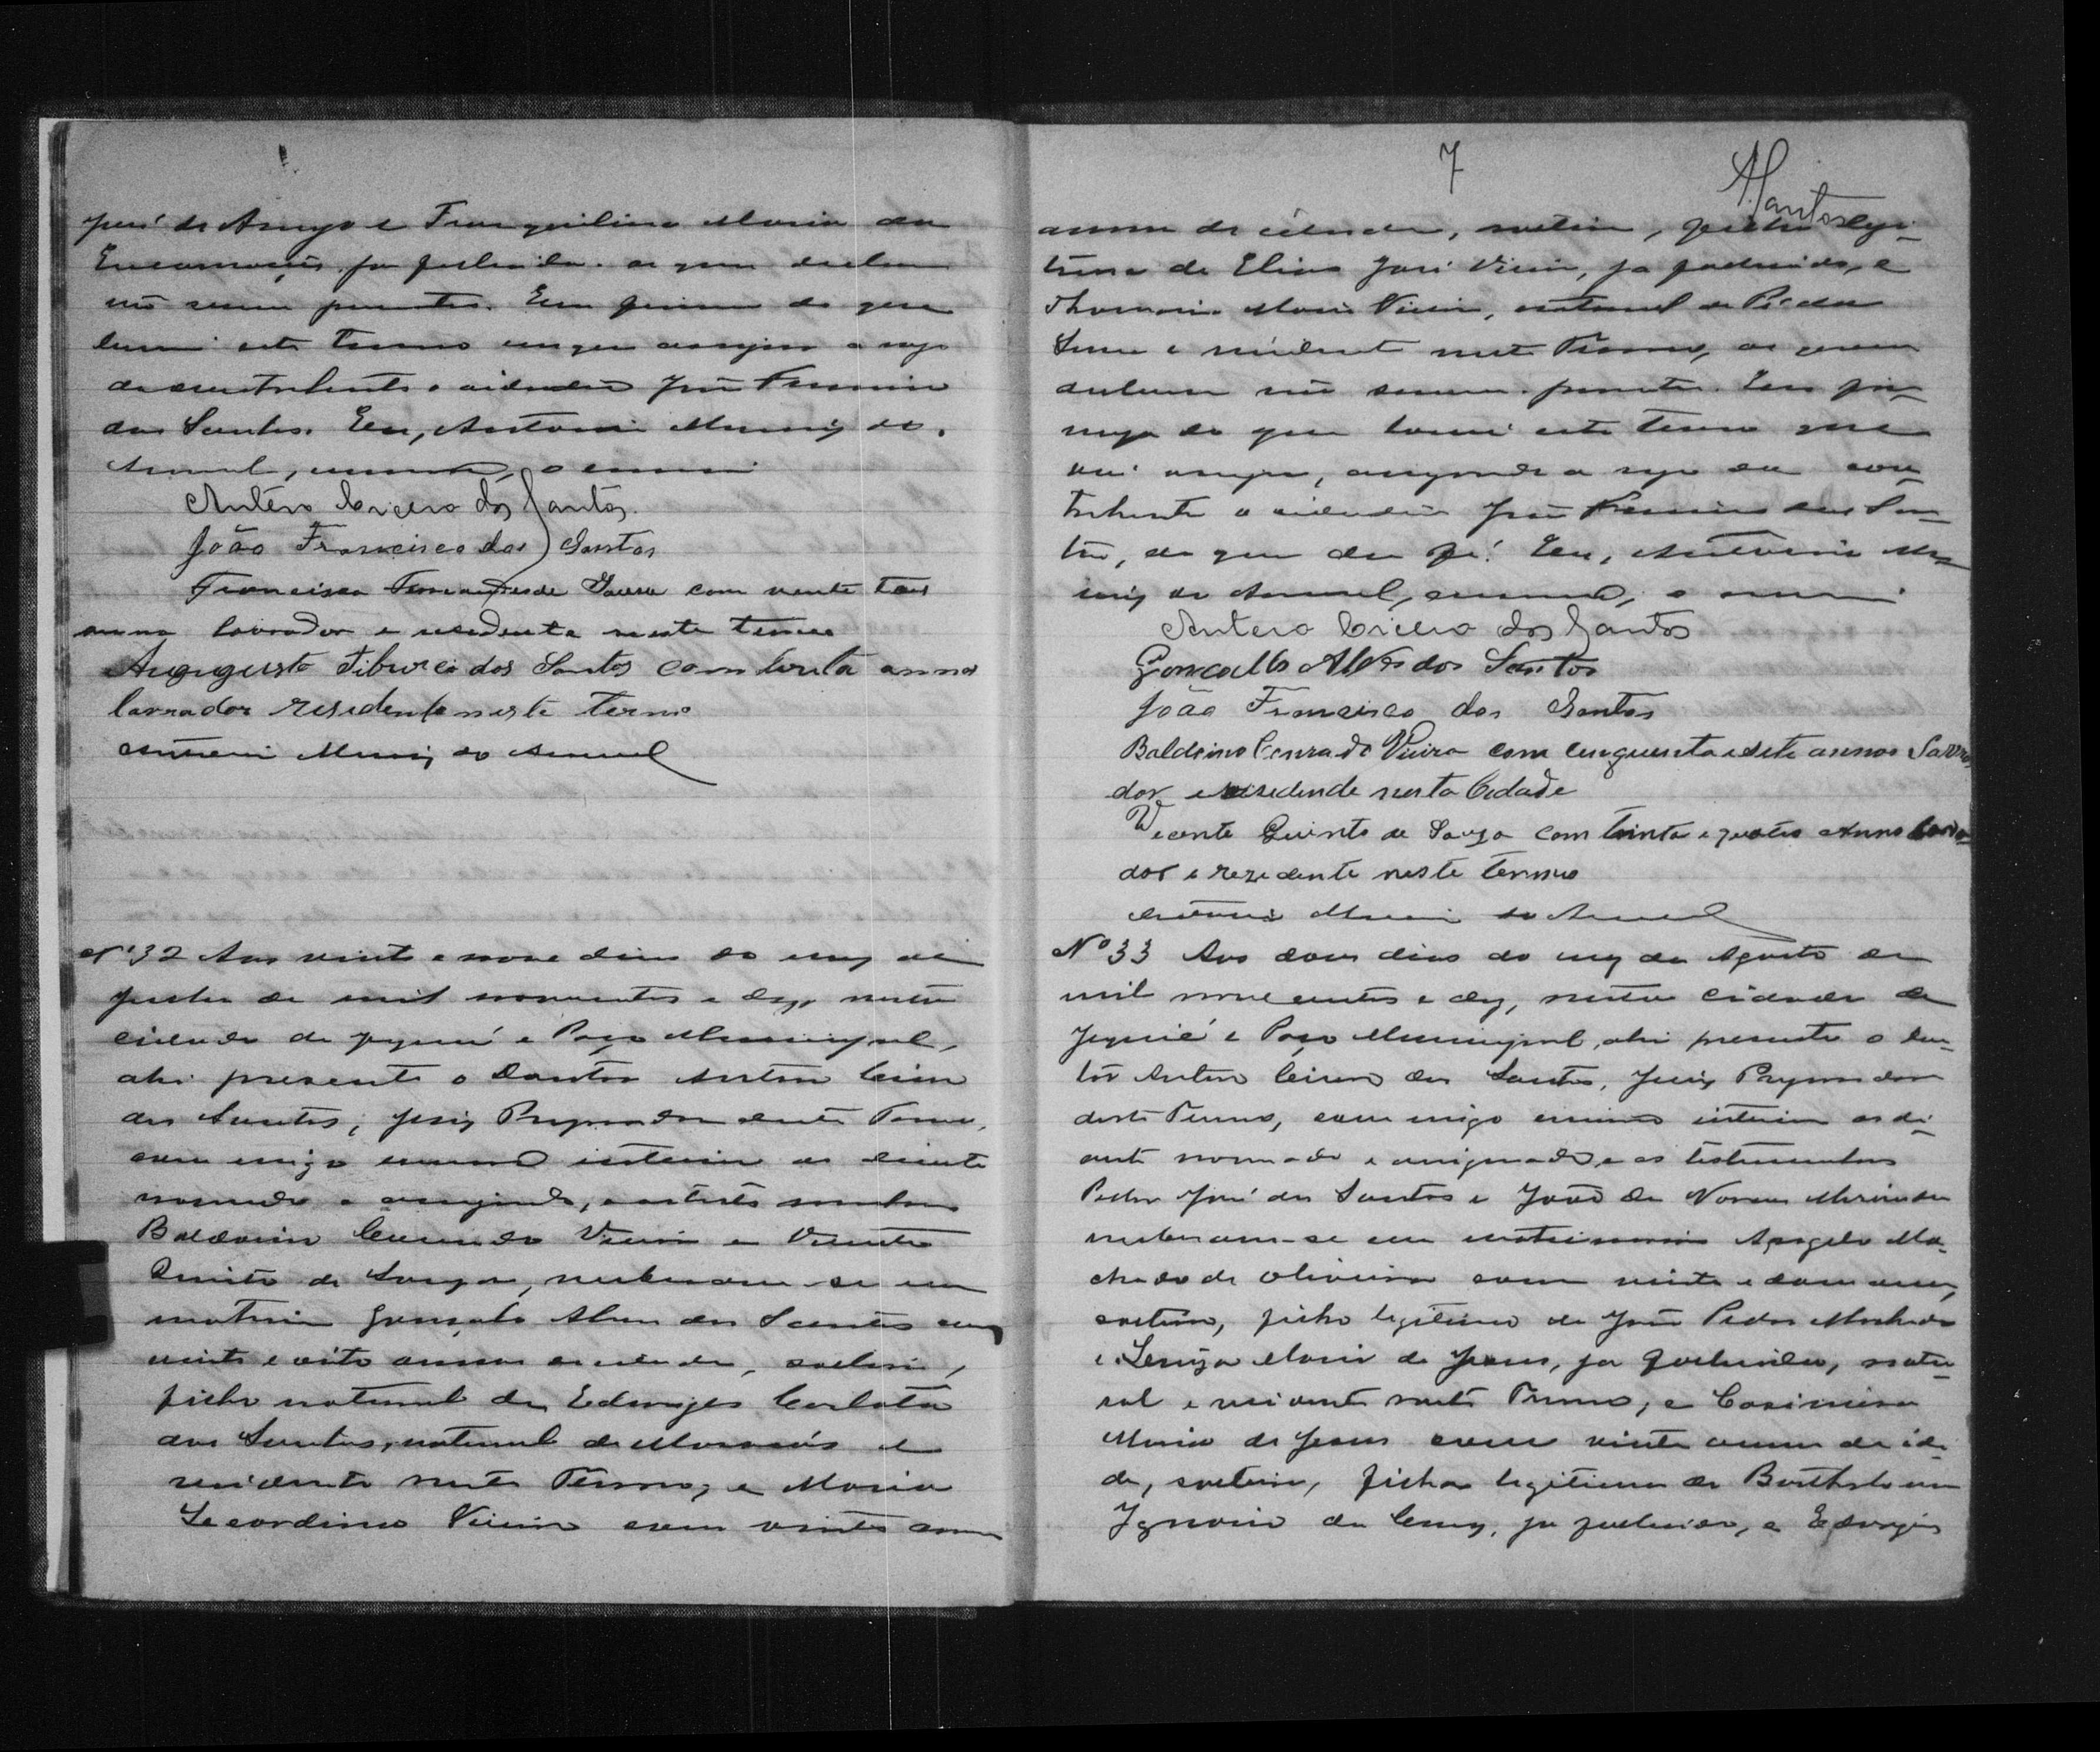 José de Araujo e Tranquilina Maria da
Encarnação, ja fallecida. os quaes declaram
não serem parentes. Em firmeza do que
lavrei este termo em que assigna a rogo
da contrahente o cidadão José Firmino
dos Santos. Eu, Antonio Muniz do
Amaral, escrivão, o escrevi
Antero Cicero dos Santos.
João Francisco dos Santos
Francisco Fernandes de Souza com vente tres
annos lavrador e resedente neste termo
Augugusto Tiburcio dos Santos com trinta annos
lavrador residente neste termo
Antonio Muniz do Amaral
Nº 32 Aos vinte e nove dias do mez de
Julho de mil novecentos e dez, nesta
cidade de Jequié e Paço Municipal,
ahi presente o Doutor Antero Cicero
dos Santos, Juiz Preparador deste Termo,
com migo escrivão interino ao diante
nomeado e assignado, e as testemunhas
Baldoino Conrado Vieira e Vicente
Quinto de Souza, receberam-se em
matrimonio Gonçalo Alves dos Santos com
vinte e oito annos de idade, solteiro,
filho natural de Edwiges Carlota
dos Santos, natural de Maracás e
residente neste Termo; e Maria
Leocardina Vieira com vinte annos
7
ASantos
annos de idade, solteira, filha legi-
tima de Elias José Vieira, ja fallecido, e
Maria Vieira, natural de
e residente neste Termo, os quaes
declaram não serem parentes. Em fir-
meza do que lavrei este termo que
vai assignado, assignando a rogo da con-
trahente o cidadão José Firmino dos San-
tos, do que dou fé. Eu, Antonio Mu-
niz do Amaral, escrivão, o escrevi
Antero Cicero dos Santos
Goncallo Alves dos Santos
João Francisco dos Santos
Baldoino Conrado Vieira com cinquenta e sete annos Lavra
dor e resedende nesta Cidade
Vicente Quinto de Souza com trinta e quatro Annos Lavra-
dor e rezedente neste termo
Antonio Muniz do Amaral
Nº 33 Aos dous dias do mez de Agosto de
mil novecentos e dez, nesta cidade de
Jequié e Paço Municipal, ahi presente o Dou-
tor Antero Cicero dos Santos, Juiz Preparador
deste Termo, com migo escrivão interino ao di-
ante nomeado e assignado, e as testemunhas
Pedro José dos Santos e João de Novaes Miranda
receberam-se em matrimonio Angelo Ma-
chado de Oliveira com vinte e dous annos,
solteiro, filho legitimo de José Pedro Machado
e Maria de Jesus, ja fallecida, natu-
ral e residente neste Termo; e Casimira
Maria de Jesus com vinte annos de ida-
de, solteira, filha legitima de Bartholomeu
Ignacio da Cruz, ja fallecido, e Edwiges